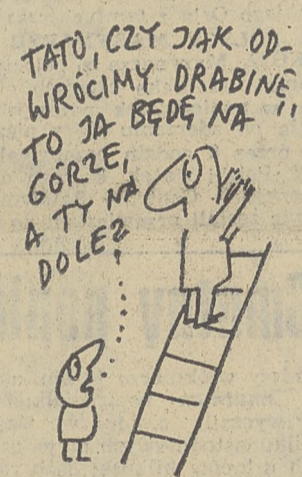 TATO, CZY JAK OD-
WRÓCIMY DRABINĘ,
TO JA BĘDĘ NA
GÓRZE,
A TY NA
DOLE?